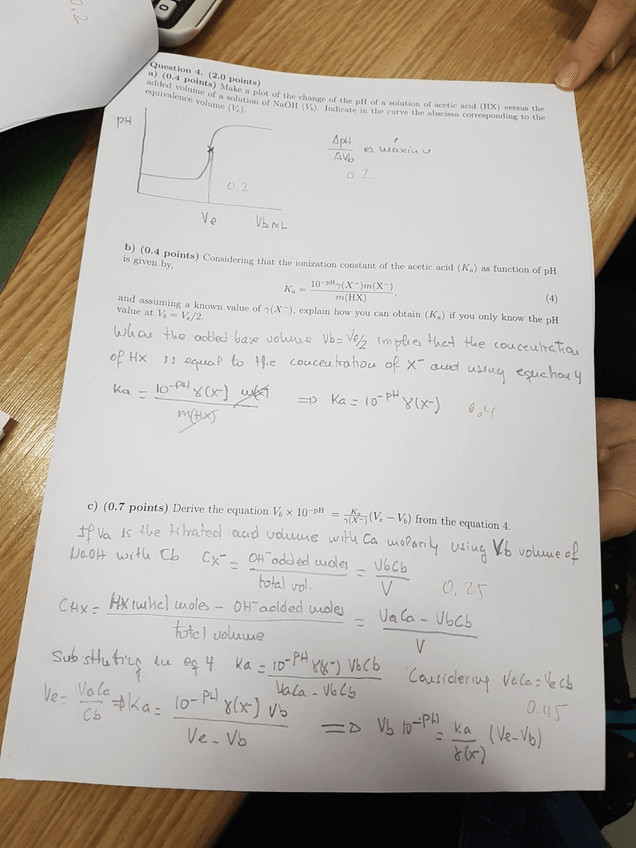 0,2
Question 4. (2.0 points)
a) (0.4 points) Make a plot of the change of the pH of a solution of acetic acid (HX) versus the
added volume of a solution of NaOH (V_b). Indicate in the curve the abscissa corresponding to the
equivalence volume (V_e).
pH
ΔpH/ΔVb es máximo
0.2
0,2
Ve Vb mL
b) (0.4 points) Considering that the ionization constant of the acetic acid (K_a) as function of pH
is given by,
K_a = 10^-pH γ(X^-)m(X^-) / m(HX), (4)
and assuming a known value of γ(X^-), explain how you can obtain (K_a) if you only know the pH
value at V_b = V_e/2.
When the added base volume Vb = Ve/2 implies that the concentration
of HX is equal to the concentration of X^- and using equation 4
Ka = 10^-pH γ(x^-) m(x^-) / m(HX) ⇒ Ka = 10^-pH γ(x^-) 0,4
c) (0.7 points) Derive the equation V_b × 10^-pH = K_a/γ(X^-) (V_e − V_b) from the equation 4.
If Va is the titrated acid volume with Ca molarity using Vb volume of
NaOH with Cb Cx^- = OH^- added moles / total vol. = VbCb / V 0,25
CHX = HX initial moles - OH^- added moles / total volume = VaCa - VbCb / V
Substituting in eq 4 Ka = 10^-pH γ(x^-) VbCb / VaCa - VbCb Considering VaCa = VeCb
Ve = VaCa / Cb ⇒ Ka = 10^-pH γ(x^-) Vb / Ve - Vb ⇒ Vb 10^-pH = Ka / γ(x^-) (Ve-Vb)
0.45